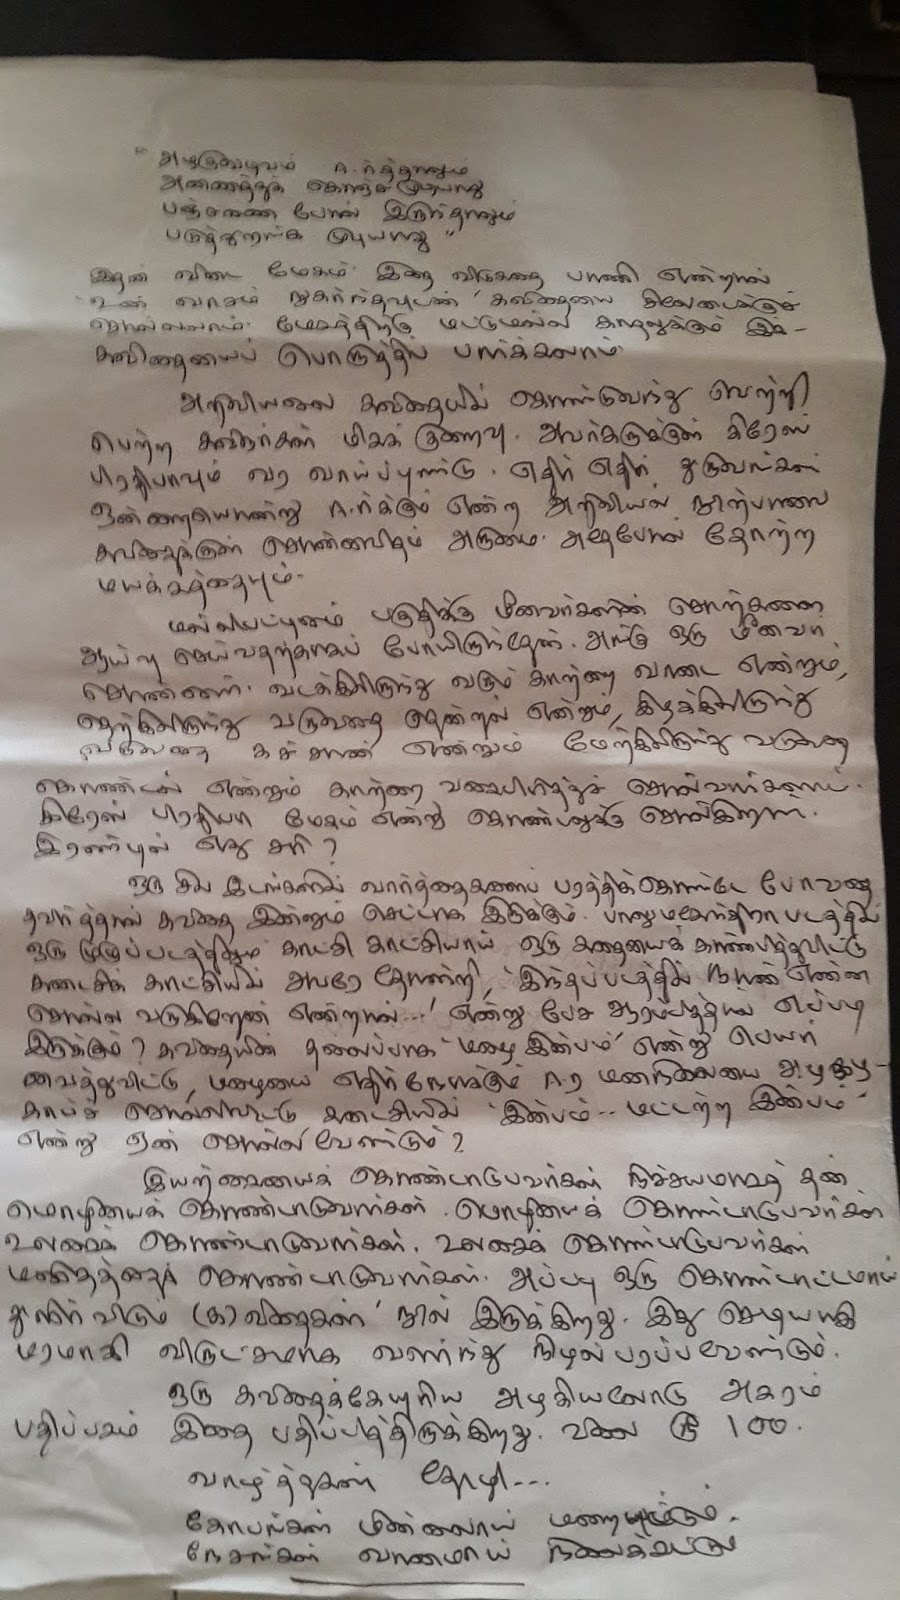 " அழகுவடிவம் ஈர்த்தாலும்
அணைத்துக் கொஞ்ச முடியாது
பஞ்சணை போல் இருந்தாலும்
படுத்துறங்க முடியாது "
இதன் விடை மேகம். இதை விடுகதை பாணி என்றால்
உன் வாசம் நுகர்ந்தவுடன் கவிதையை சிலேடைக்குச்
சொல்லலாம். மேகத்திற்கு மட்டுமல்ல காதலுக்கும் இக்-
கவிதையைப் பொருத்திப் பார்க்கலாம்.
அறிவியலை கவிதையில் கொண்டுவந்து வெற்றி
பெற்ற கவிஞர்கள் மிகக் குறைவு. அவர்களுக்குள் கிரேஸ்
பிரதிபாவும் வர வாய்ப்புண்டு. எதிர் எதிர் துருவங்கள்
ஒன்றையொன்று ஈர்க்கும் என்ற அறிவியல் நூற்பாவை
கவிதைக்குள் சொன்னவிதம் அருமை. அதேபோல் தோற்ற
மயக்கத்தையும்.
மல்லிபட்டினம் பகுதிக்கு மீனவர்களின் சொற்களை
ஆய்வு செய்வதற்காகப் போயிருந்தேன். அங்கு ஒரு மீனவர்
சொன்னார். வடக்கிலிருந்து வரும் காற்றை வாடை என்றும்,
தெற்கிலிருந்து வருவதை தென்றல் என்றும், கிழக்கிலிருந்து
வருவதை கச்சான் என்றும் மேற்கிலிருந்து வருவதை
கொண்டல் என்றும் காற்றை வகைபிரித்துச் சொல்வார்களாம்.
கிரேஸ் பிரதிபா மேகம் என்று கொண்டலுக்கு சொல்கிறார்.
இரண்டில் எது சரி?
ஒரு சில இடங்களில் வார்த்தைகளைப் பரத்திக்கொண்டே போவதை
தவிர்த்தால் கவிதை இன்னும் செட்டாக இருக்கும். பாலுமகேந்திரா படத்தில்
ஒரு முழுப்படத்திலும் காட்சி காட்சியாய் ஒரு கதையைக் காண்பித்துவிட்டு
கடைசிக் காட்சியில் அவரே தோன்றி, 'இந்தப்படத்தில் நான் என்ன
சொல்ல வருகிறேன் என்றால்...' என்று பேச ஆரம்பித்தால் எப்படி
இருக்கும்? கவிதையின் தலைப்பாக 'மழை இன்பம்' என்று பெயர்
வைத்துவிட்டு, மழையை எதிர்நோக்கும் ஈர மனநிலையை அழகழ-
காய்ச் சொல்லிவிட்டு கடைசியில் 'இன்பம்.. மட்டற்ற இன்பம்'
என்று ஏன் சொல்ல வேண்டும்?
இயற்கையைக் கொண்டாடுபவர்கள் நிச்சயமாகத் தன்
மொழியைக் கொண்டாடுவார்கள். மொழியைக் கொண்டாடுபவர்கள்
உலகைக் கொண்டாடுவார்கள். உலகைக் கொண்டாடுபவர்கள்
மனிதத்தைக் கொண்டாடுவார்கள். அப்படி ஒரு கொண்டாட்டமாய்
துளிர் விடும் (க)விதைகள்' நூல் இருக்கிறது. இது செடியாகி
மரமாகி விருட்சமாக வளர்ந்து நிழல் பரப்பவேண்டும்.
ஒரு கவிதைக்கேயுரிய அழகியலோடு அகரம்
பதிப்பகம் இதை பதிப்பித்திருக்கிறது. விலை ரூ 100.
வாழ்த்துகள் தோழி...
கோபங்கள் மின்னலாய் மறையட்டும்.
நேசங்கள் வானமாய் நிலைக்கட்டும்